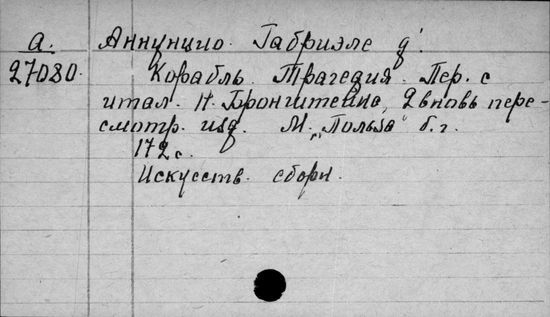 а. Аннунцио. Габриэле д'.
27080. Корабль. Трагедия. Пер. с
итал. Н. Бронштейна, 2 вновь пере-
смотр. изд. М. „Польза" б. г.
172 с.
Искусств. сборн.